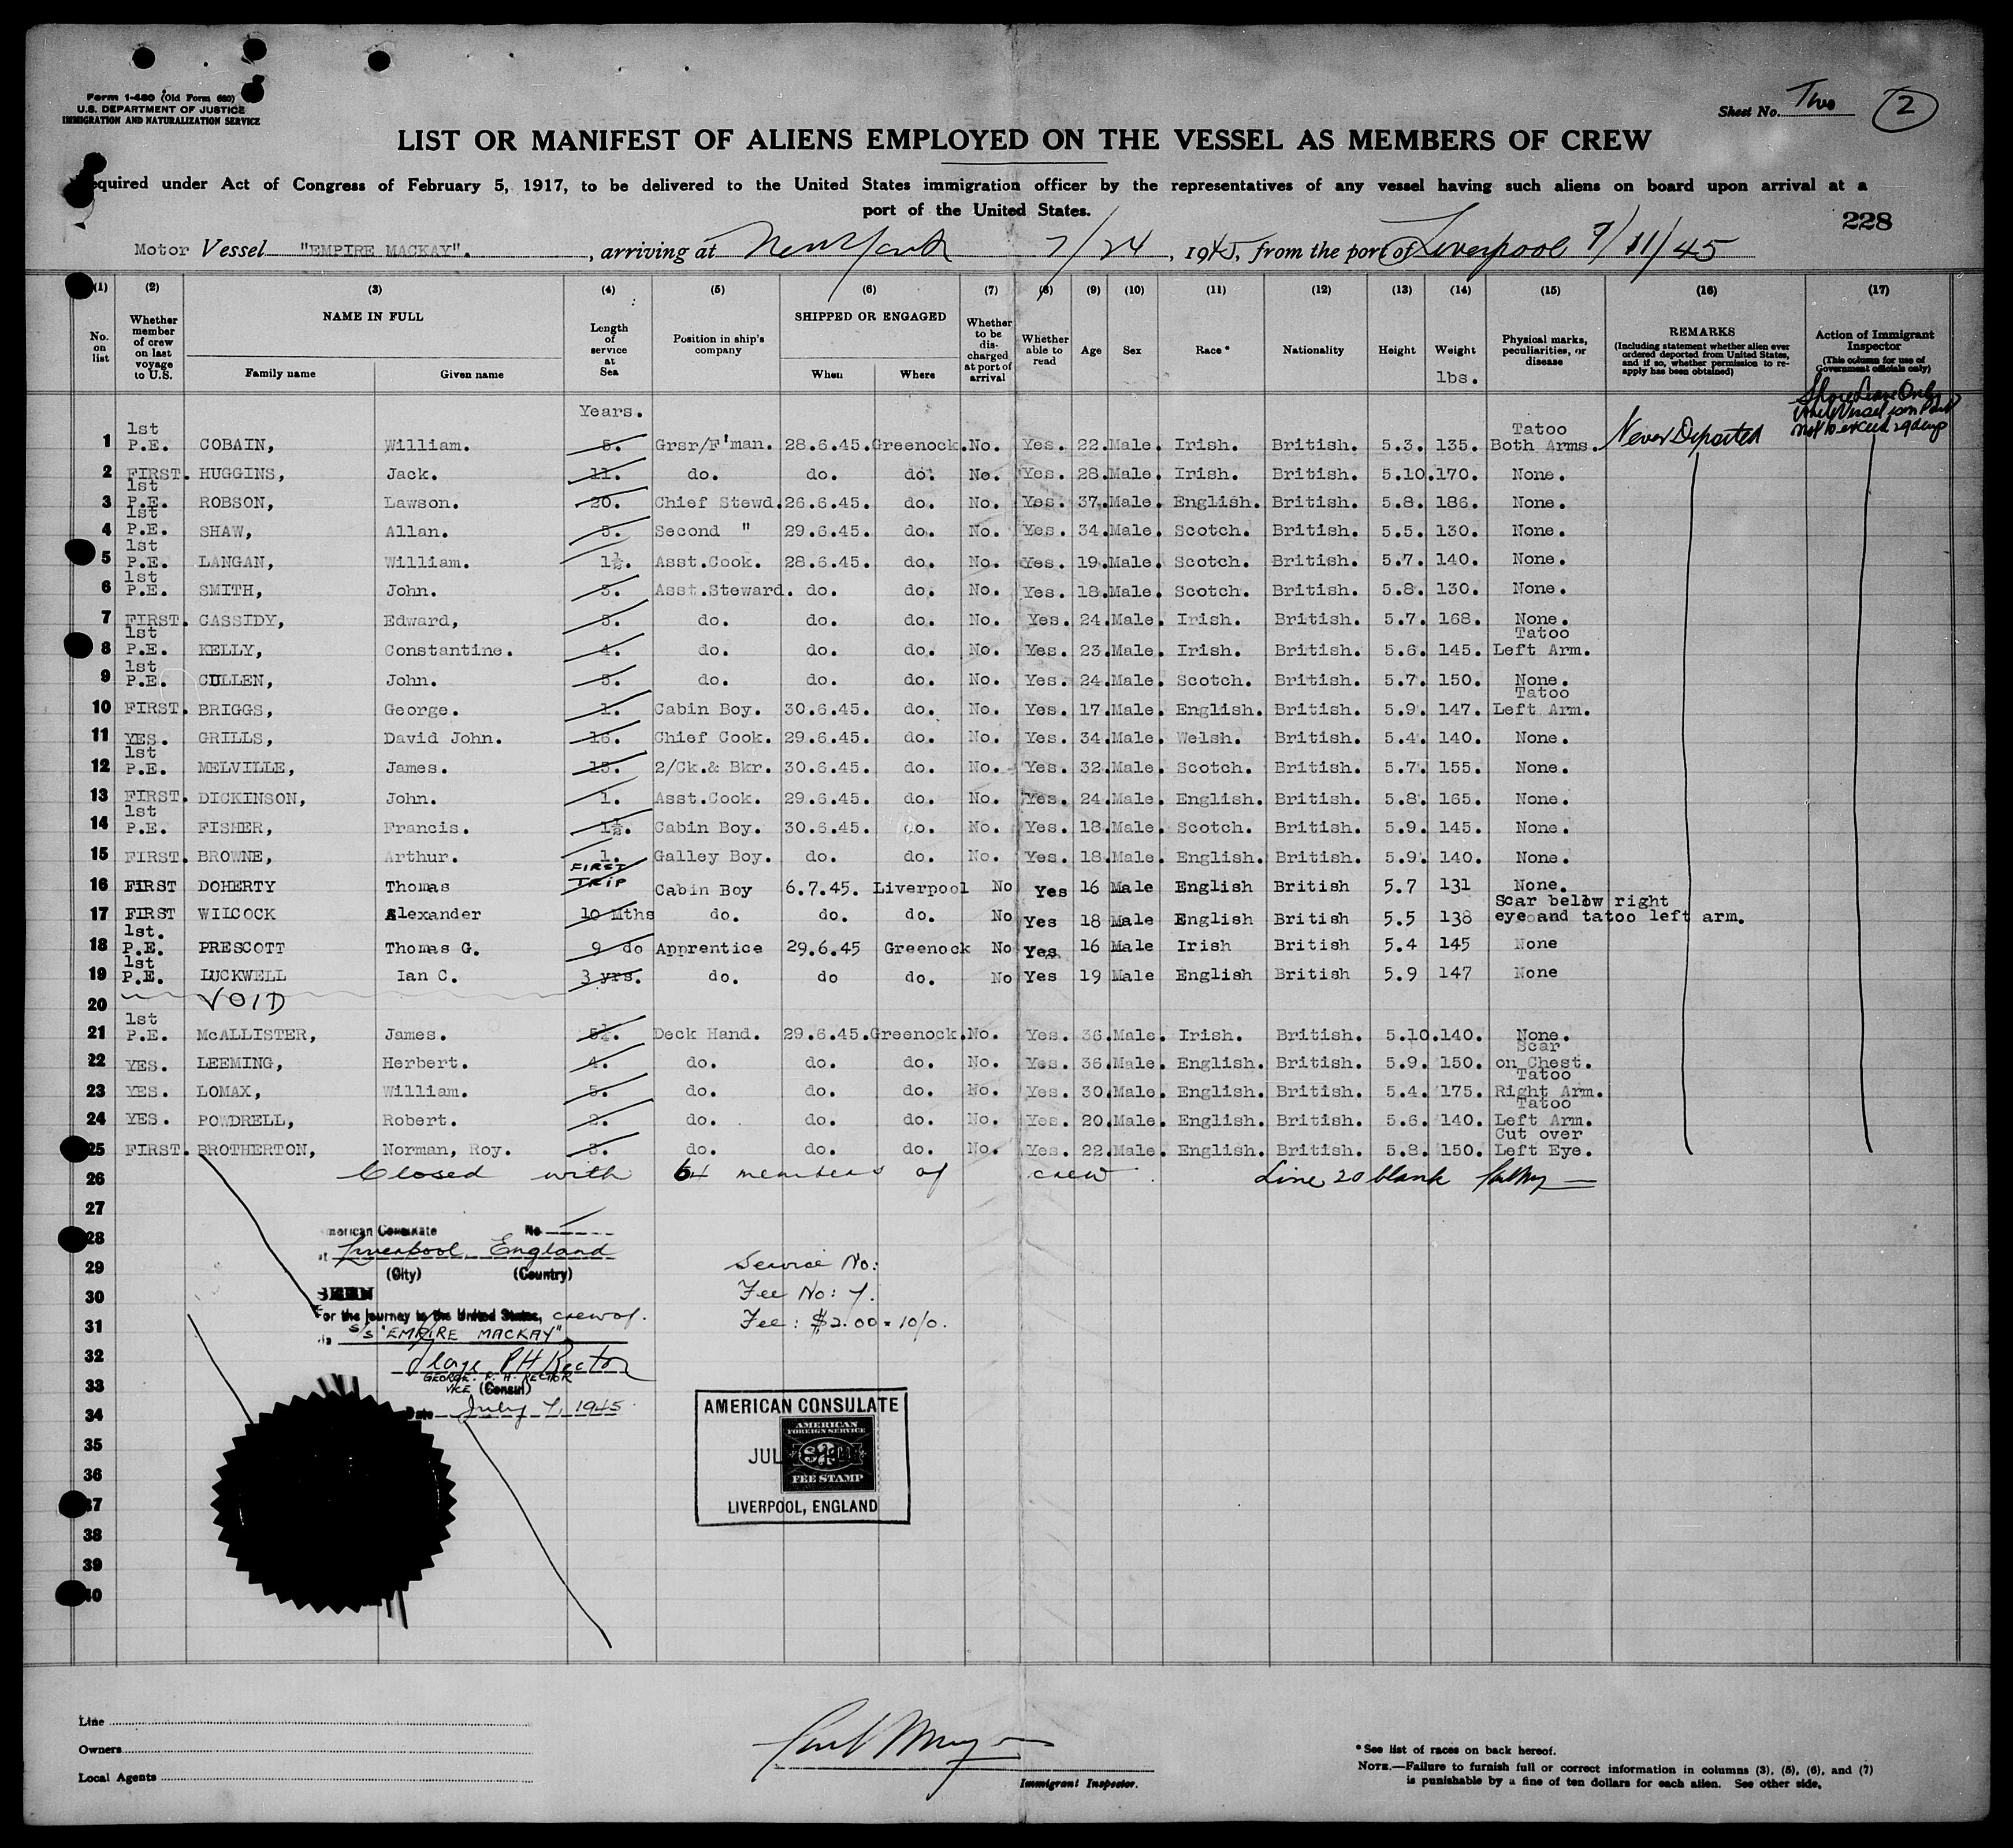 Form 1-480 (Old Form 680)
U.S. DEPARTMENT OF JUSTICE
IMMIGRATION AND NATURALIZATION SERVICE
Sheet No. Two 2
LIST OR MANIFEST OF ALIENS EMPLOYED ON THE VESSEL AS MEMBERS OF CREW
equired under Act of Congress of February 5, 1917, to be delivered to the United States immigration officer by the representatives of any vessel having such aliens on board upon arrival at a
port of the United States.
228
Motor Vessel "EMPIRE MACKAY". , arriving at New York 7/24 , 1945, from the port of Liverpool 7/11/45
(1) (2) (3) (4) (5) (6) (7) (8) (9) (10) (11) (12) (13) (14) (15) (16) (17)
No. on list
Whether member of crew on last voyage to U.S.
NAME IN FULL
Family name Given name
Length of service at Sea
Position in ship's company
SHIPPED OR ENGAGED
When Where
Whether to be discharged at port of arrival
Whether able to read
Age
Sex
Race*
Nationality
Height
Weight
lbs.
Physical marks, peculiarities, or disease
REMARKS
(Including statement whether alien ever ordered deported from United States, and if so, whether permission to reapply has been obtained)
Action of Immigrant Inspector
(This column for use of Government officials only)
Shore Leave Only
While Vessel is in Port
not to exceed 29 days
Years.
1 1st P.E. COBAIN, William. 5. Grsr/F'man. 28.6.45. Greenock. No. Yes. 22. Male. Irish. British. 5.3. 135. Tatoo Both Arms. Never Deported
2 FIRST. HUGGINS, Jack. 11. do. do. do. No. Yes. 28. Male. Irish. British. 5.10. 170. None.
3 1st P.E. ROBSON, Lawson. 20. Chief Stewd. 26.6.45. do. No. Yes. 37. Male. English. British. 5.8. 186. None.
4 1st P.E. SHAW, Allan. 5. Second " 29.6.45. do. No. Yes. 34. Male. Scotch. British. 5.5. 130. None.
5 1st P.E. LANGAN, William. 1½. Asst.Cook. 28.6.45. do. No. Yes. 19. Male. Scotch. British. 5.7. 140. None.
6 1st P.E. SMITH, John. 3. Asst.Steward. do. do. No. Yes. 18. Male. Scotch. British. 5.8. 130. None.
7 FIRST. CASSIDY, Edward, 5. do. do. do. No. Yes. 24. Male. Irish. British. 5.7. 168. None.
8 1st P.E. KELLY, Constantine. 4. do. do. do. No. Yes. 23. Male. Irish. British. 5.6. 145. Tatoo Left Arm.
9 1st P.E. CULLEN, John. 5. do. do. do. No. Yes. 24. Male. Scotch. British. 5.7. 150. None.
10 FIRST. BRIGGS, George. 1. Cabin Boy. 30.6.45. do. No. Yes. 17. Male. English. British. 5.9. 147. Tatoo Left Arm.
11 YES. GRILLS, David John. 16. Chief Cook. 29.6.45. do. No. Yes. 34. Male. Welsh. British. 5.4. 140. None.
12 1st P.E. MELVILLE, James. 15. 2/Ck.& Bkr. 30.6.45. do. No. Yes. 32. Male. Scotch. British. 5.7. 155. None.
13 FIRST. DICKINSON, John. 1. Asst.Cook. 29.6.45. do. No. Yes. 24. Male. English. British. 5.8. 165. None.
14 1st P.E. FISHER, Francis. 1½. Cabin Boy. 30.6.45. do. No. Yes. 18. Male. Scotch. British. 5.9. 145. None.
15 FIRST. BROWNE, Arthur. 1. Galley Boy. do. do. No. Yes. 18. Male. English. British. 5.9. 140. None.
16 FIRST DOHERTY Thomas FIRST TRIP Cabin Boy 6.7.45. Liverpool No Yes 16 Male English British 5.7 131 None.
17 FIRST WILCOCK Alexander 10 Mths do. do. do. No Yes 18 Male English British 5.5 138 Scar below right eye and tatoo left arm.
18 1st. P.E. PRESCOTT Thomas G. 9 do Apprentice 29.6.45 Greenock No Yes 16 Male Irish British 5.4 145 None
19 1st P.E. LUCKWELL Ian C. 3 yrs. do. do do. No Yes 19 Male English British 5.9 147 None
20 VOID
21 1st P.E. McALLISTER, James. 5½. Deck Hand. 29.6.45. Greenock. No. Yes. 36. Male. Irish. British. 5.10. 140. None.
22 YES. LEEMING, Herbert. 4. do. do. do. No. Yes. 36. Male. English. British. 5.9. 150. Scar on Chest.
23 YES. LOMAX, William. 5. do. do. do. No. Yes. 30. Male. English. British. 5.4. 175. Tatoo Right Arm.
24 YES. POWDRELL, Robert. 2. do. do. do. No. Yes. 20. Male. English. British. 5.6. 140. Tatoo Left Arm.
25 FIRST. BROTHERTON, Norman, Roy. 3. do. do. do. No. Yes. 22. Male. English. British. 5.8. 150. Cut over Left Eye.
26 Closed with 64 members of crew Line 20 blank
27
28 merican Consulate No
at Liverpool, England
29 (City) (Country) Service No:
30 SEEN Fee No: 7.
31 For the journey to the United States, crew of. Fee: $2.00 = 10/0.
S/S "EMPIRE MACKAY"
32 George P H Rector
GEORGE. P. H. RECTOR
33 VICE (Consul)
34 Date July 7, 1945
AMERICAN CONSULATE
AMERICAN FOREIGN SERVICE
35 JUL
36 FEE STAMP
37 LIVERPOOL, ENGLAND
38
39
40
Line
Owners
Local Agents
Immigrant Inspector.
*See list of races on back hereof.
NOTE.—Failure to furnish full or correct information in columns (3), (5), (6), and (7)
is punishable by a fine of ten dollars for each alien. See other side.